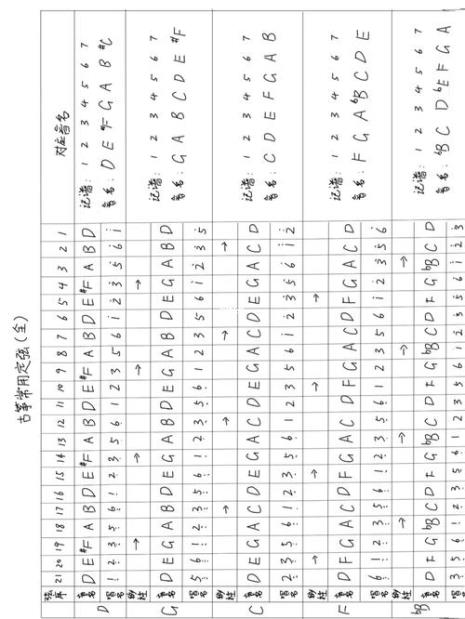 古筝常用定弦(全)
弦序 21 20 19 18 17 16 15 14 13 12 11 10 9 8 7 6 5 4 3 2 1 对应音名
D
音名 D E #F A B D E #F A B D E #F A B D E #F A B D 记谱: 1 2 3 4 5 6 7
唱名 1 2 3 5 6 1 2 3 5 6 1 2 3 5 6 1 2 3 5 6 1 音名: D E #F G A B #C
↑ ↑ ↑ ↑
G
音名 D E G A B D E G A B D E G A B D E G A B D 记谱: 1 2 3 4 5 6 7
唱名 5 6 1 2 3 5 6 1 2 3 5 6 1 2 3 5 6 1 2 3 5 音名: G A B C D E #F
↑ ↑ ↑ ↑
C
音名 D E G A C D E G A C D E G A C D E G A C D 记谱: 1 2 3 4 5 6 7
唱名 2 3 5 6 1 2 3 5 6 1 2 3 5 6 1 2 3 5 6 1 2 音名: C D E F G A B
↑ ↑ ↑ ↑
F
音名 D F G A C D F G A C D F G A C D F G A C D 记谱: 1 2 3 4 5 6 7
唱名 6 1 2 3 5 6 1 2 3 5 6 1 2 3 5 6 1 2 3 5 6 音名: F G A bB C D E
↑ ↑ ↑ ↑
bB
音名 D F G bB C D F G bB C D F G bB C D F G bB C D 记谱: 1 2 3 4 5 6 7
唱名 3 5 6 1 2 3 5 6 1 2 3 5 6 1 2 3 5 6 1 2 3 音名: bB C D bE F G A